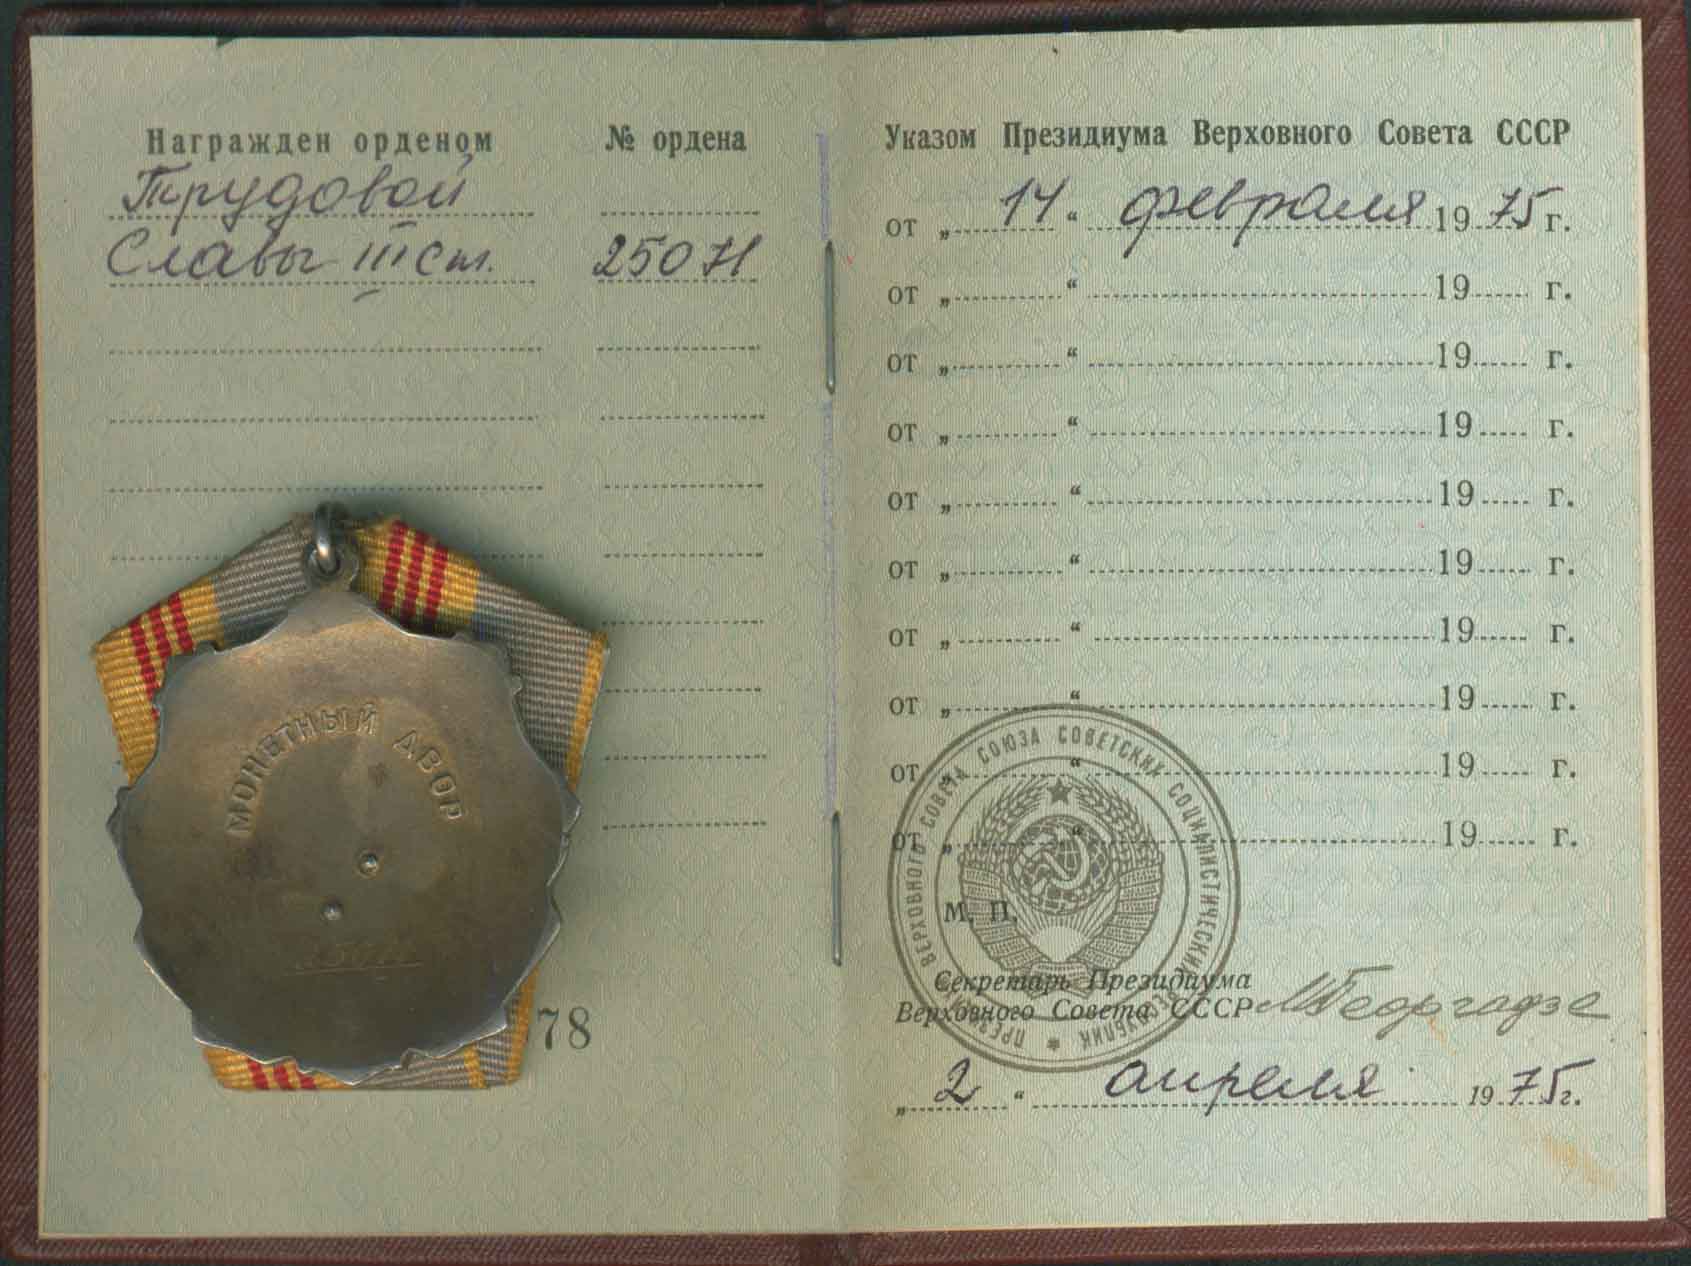 Награжден орденом
№ ордена
Трудовой
Славы III ст.
250 Н
МОНЕТНЫЙ ДВОР
78
Указом Президиума Верховного Совета СССР
от „14“ февраля 1975 г.
от „ “ 19 г.
от „ “ 19 г.
от „ “ 19 г.
от „ “ 19 г.
от „ “ 19 г.
от „ “ 19 г.
от „ “ 19 г.
от „ “ 19 г.
от „ “ 19 г.
ПРЕЗИДИУМ ВЕРХОВНОГО СОВЕТА СОЮЗА СОВЕТСКИХ СОЦИАЛИСТИЧЕСКИХ РЕСПУБЛИК
М. П.
Секретарь Президиума
Верховного Совета СССР МГеоргадзе
„2“ апреля 1975 г.